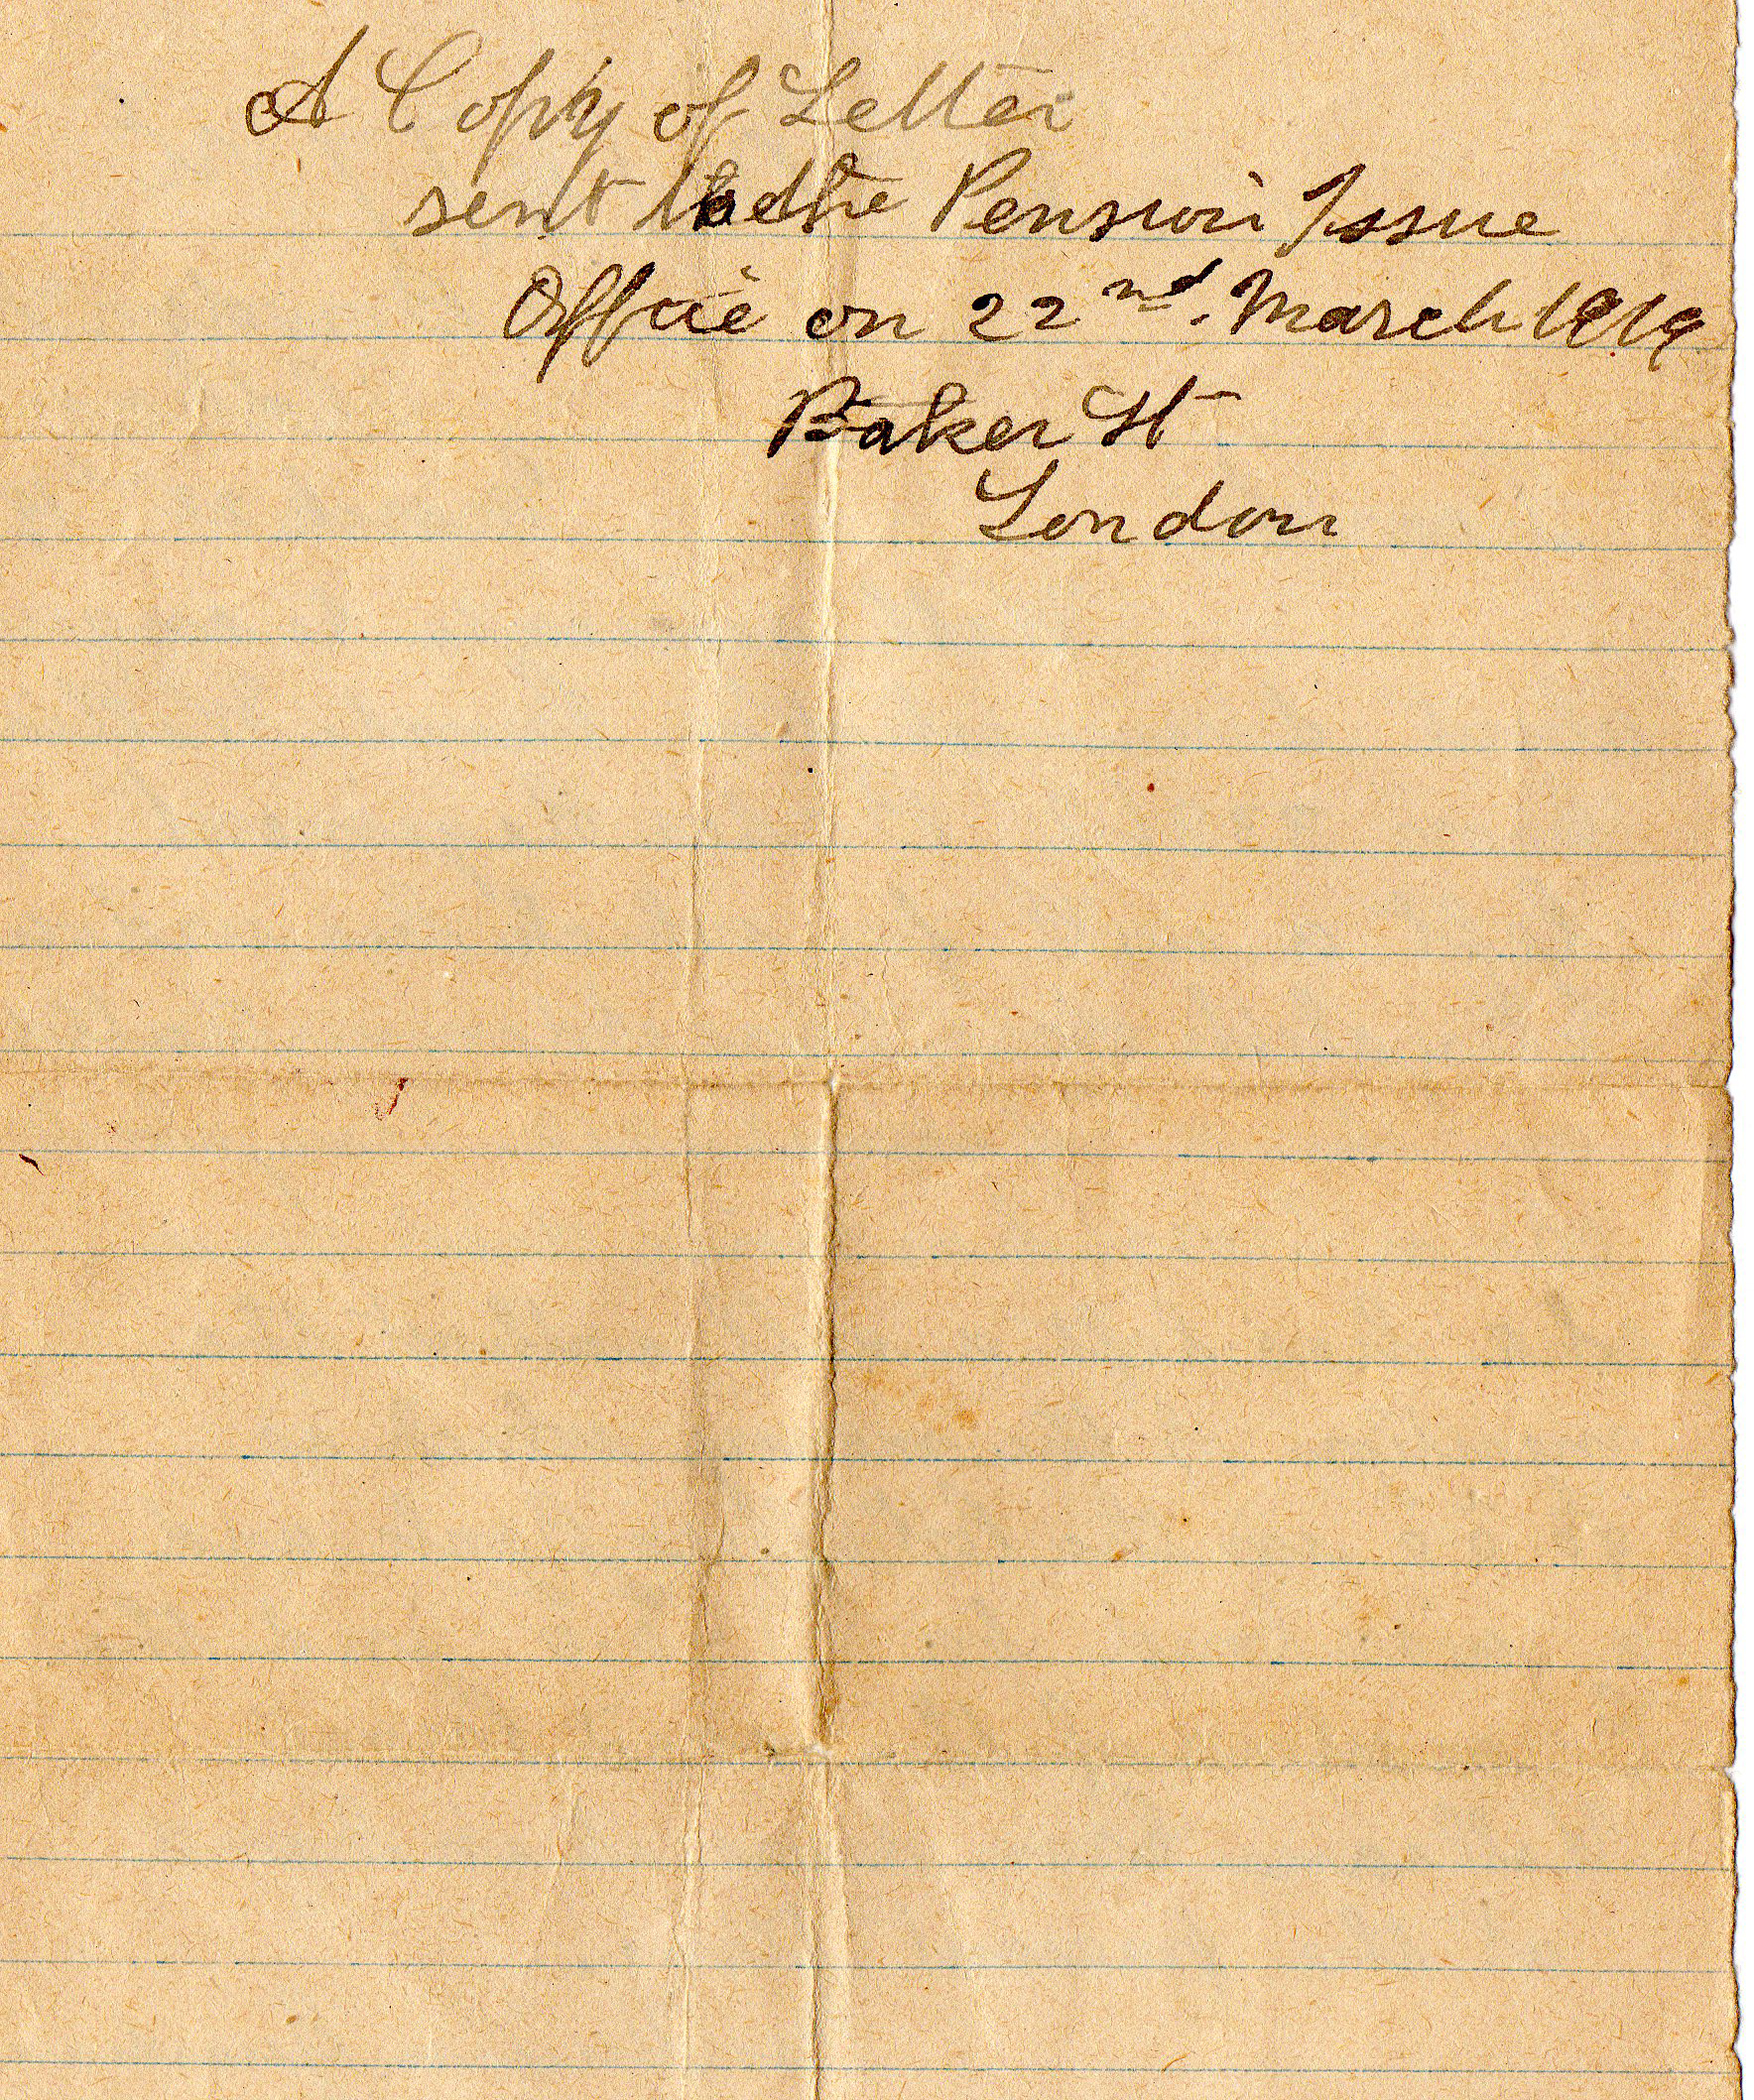 A Copy of Letter
sent to the Pension Issue
Office on 22nd. March 1919
Baker St
London